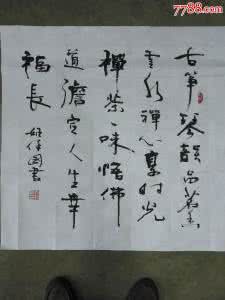 7788.com
古筝琴韵品茗香
云水禅心享时光
禅茶一味悟佛
道澹定人生华
福长